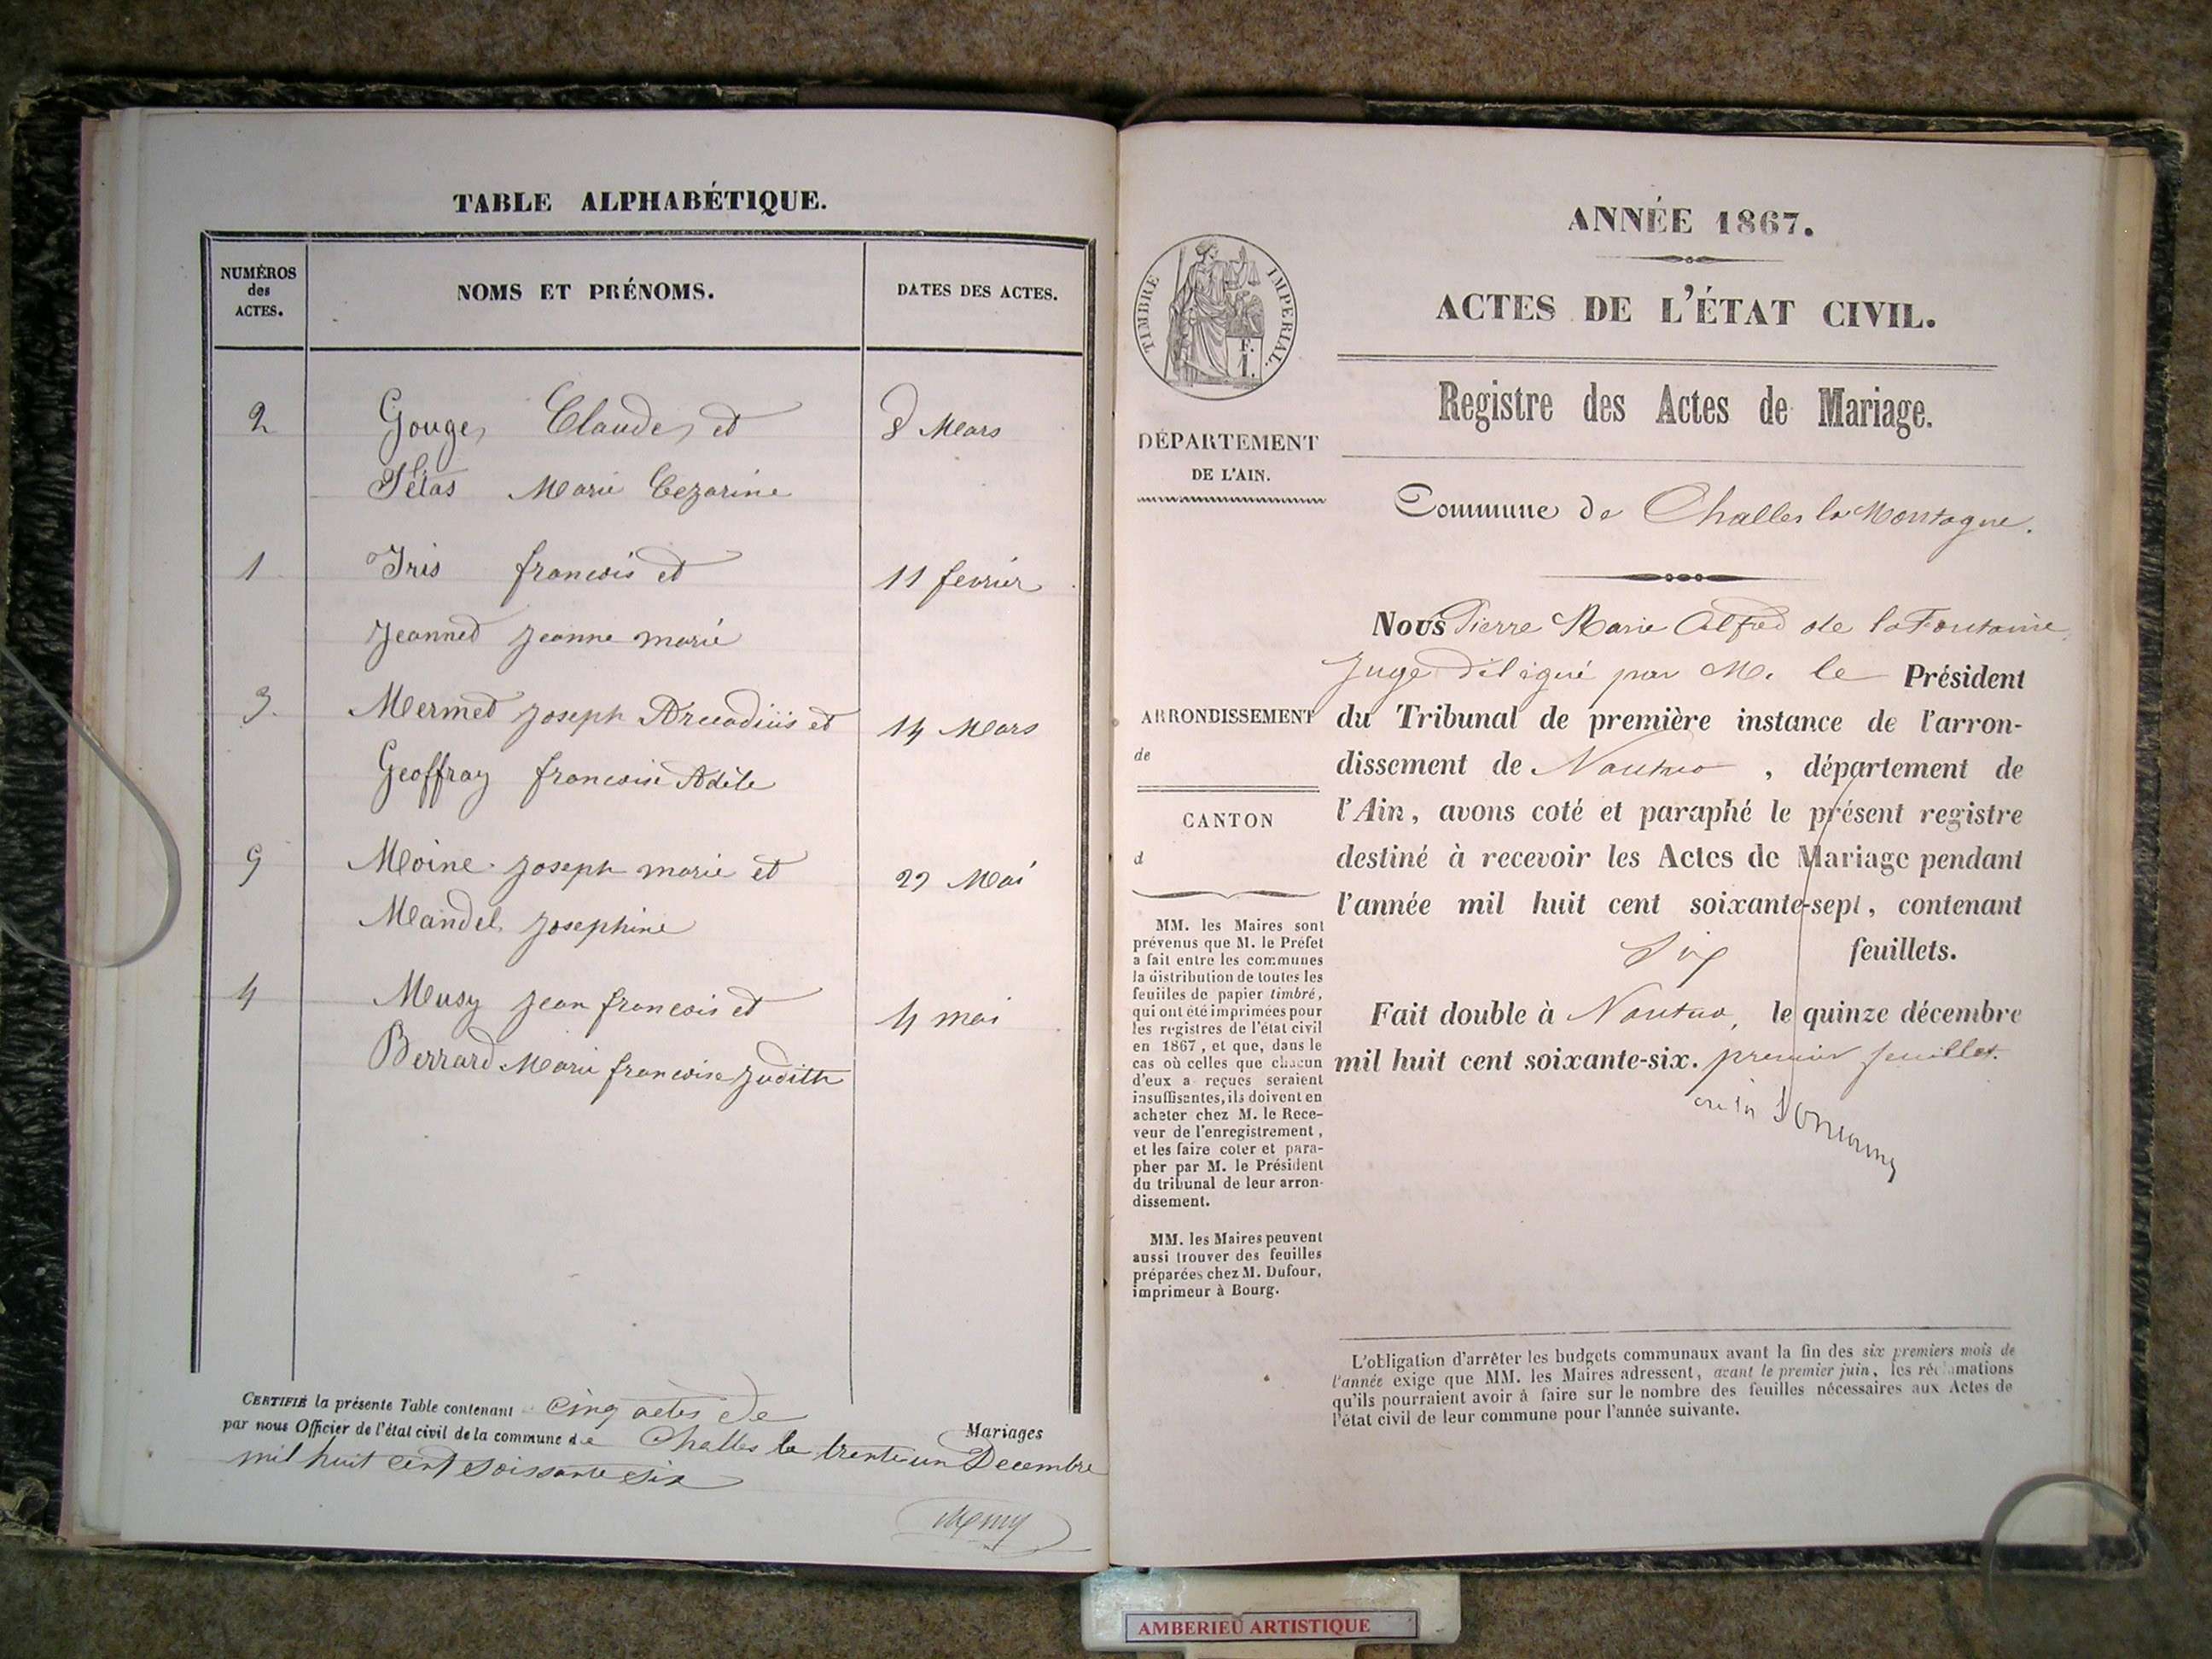 TABLE ALPHABÉTIQUE.
NUMÉROS des ACTES.
NOMS ET PRÉNOMS.
DATES DES ACTES.
2 Gouge, Claude, et 8 Mars
Pétas Marie Cezarine
1 Iris francois et 11 fevrier
Jeannet Jeanne marie
3. Mermet Joseph et 14 Mars
Geoffray francoise Adèle
5 Moine Joseph marie et 22 Mai
Mandel Josephine
4 Musy Jean francois et 4 mai
Berrard Marie francoise Judith
CERTIFIÉ la présente Table contenant cinq actes de Mariages
par nous Officier de l'état civil de la commune de Challes le trente un Decembre
mil huit cent soissante six
ANNÉE 1867.
ACTES DE L'ÉTAT CIVIL.
Registre des Actes de Mariage.
TIMBRE IMPERIAL.
F. I.
DÉPARTEMENT
DE L'AIN.
Commune de Challes la Montagne.
ARRONDISSEMENT
de
CANTON
d
MM. les Maires sont
prévenus que M. le Préfet
a fait entre les communes
la distribution de toutes les
feuilles de papier timbré,
qui ont été imprimées pour
les registres de l'état civil
en 1867, et que, dans le
cas où celles que chacun
d'eux a reçues seraient
insuffisantes, ils doivent en
acheter chez M. le Rece-
veur de l'enregistrement,
et les faire coter et para-
pher par M. le Président
du tribunal de leur arron-
dissement.
MM. les Maires peuvent
aussi trouver des feuilles
préparées chez M. Dufour,
imprimeur à Bourg.
Nous Pierre Marie Alfred de la Fontaine,
Juge délégué par M. le Président
du Tribunal de première instance de l'arron-
dissement de Nantua, département de
l'Ain, avons coté et paraphé le présent registre
destiné à recevoir les Actes de Mariage pendant
l'année mil huit cent soixante-sept, contenant
Six feuillets.
Fait double à Nantua, le quinze décembre
mil huit cent soixante-six. premier feuillet.
L'obligation d'arrêter les budgets communaux avant la fin des six premiers mois de
l'année exige que MM. les Maires adressent, avant le premier juin, les réclamations
qu'ils pourraient avoir à faire sur le nombre des feuilles nécessaires aux Actes de
l'état civil de leur commune pour l'année suivante.
AMBERIEU ARTISTIQUE